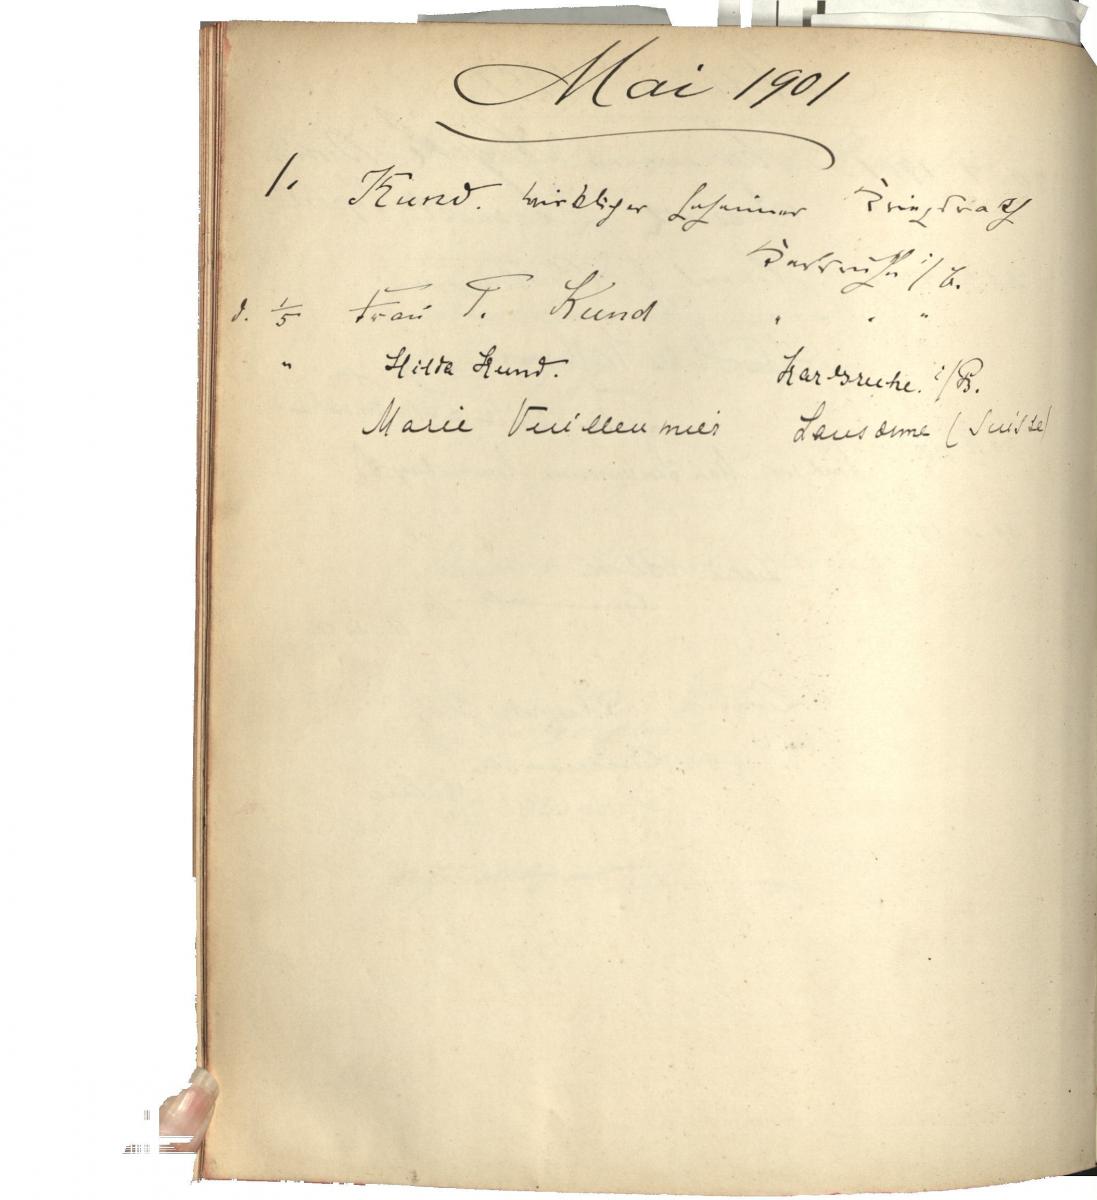 Mai 1901
1. Kund. wirklicher Geheimer Kriegsrath
Karlsruhe i/B.
d. 1/5 Frau T. Kund " " "
" Hilda Kund. Karlsruhe. i/B.
Marie Vuilleumier Lausanne (Suisse)